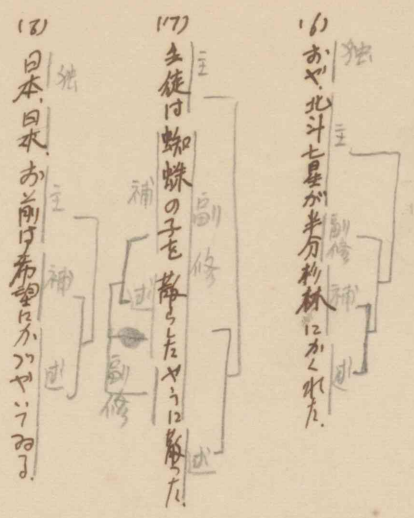 (6) おや、北斗七星が半分杉林にかくれた。
独 主 副修 補 述
(17) 生徒は蜘蛛の子を散らしたやうに散つた。
主 副修 述
補 述 副修
(8) 日本、日本、お前は希望にかゞやいてゐる。
独 主 補 述